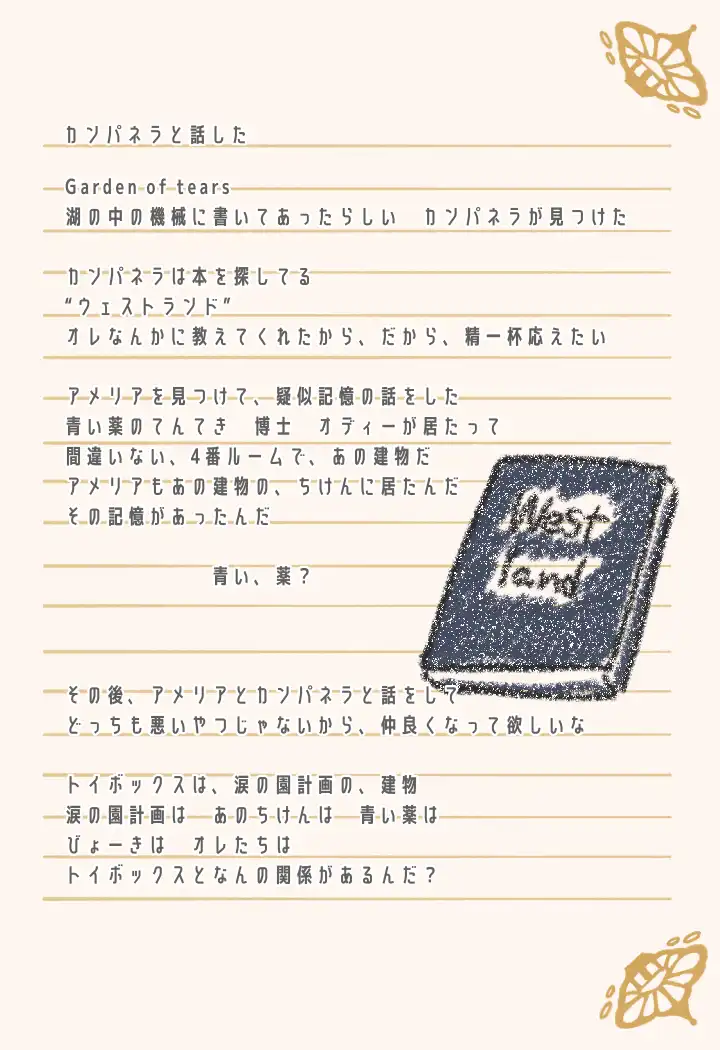 カンパネラと話した
Garden of tears
湖の中の機械に書いてあったらしい　カンパネラが見つけた
カンパネラは本を探してる
“ウェストランド”
オレなんかに教えてくれたから、だから、精一杯応えたい
アメリアを見つけて、疑似記憶の話をした
青い薬のてんてき　博士　オディーが居たって
間違いない、4番ルームで、あの建物だ
アメリアもあの建物の、ちけんに居たんだ
その記憶があったんだ
West
land
青い、薬？
その後、アメリアとカンパネラと話をして
どっちも悪いやつじゃないから、仲良くなって欲しいな
トイボックスは、涙の園計画の、建物
涙の園計画は　あのちけんは　青い薬は
びょーきは　オレたちは
トイボックスとなんの関係があるんだ？